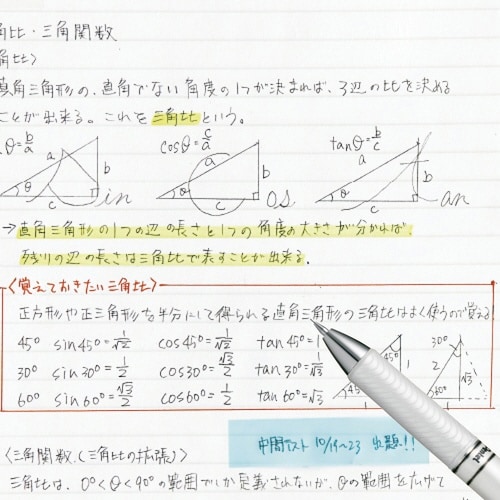 角比・三角関数
角比〉
直角三角形の、直角でない角度の1つが決まれば、3辺の比を決める
ことが出来る。これを三角比という。
θ=b/a cosθ=c/a tanθ=b/c
a b θ c in
a b θ c os
a b θ c an
→直角三角形の1つの辺の長さと1つの角度の大きさが分かれば、
残りの辺の長さは三角比で表すことが出来る。
〈覚えておきたい三角比〉
正方形や正三角形を半分にして得られる直角三角形の三角比はよく使うので覚える!
45° sin45°=1/√2 cos45°=1/√2 tan45°=1
30° sin30°=1/2 cos30°=√3/2 tan30°=1/√3
60° sin60°=√3/2 cos60°=1/2 tan60°=√3
45° 45° 1
30° 2 √3 60°
中間テスト 10/19~23 出題!!
〈三角関数(三角比の拡張)〉
三角比は、0°<θ<90°の範囲でしか定義されないが、θの範囲を広げて